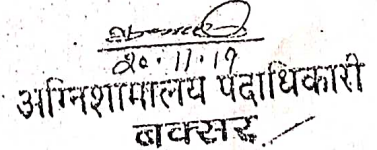 20.11.19
अग्निशामालय पदाधिकारी
बक्सर